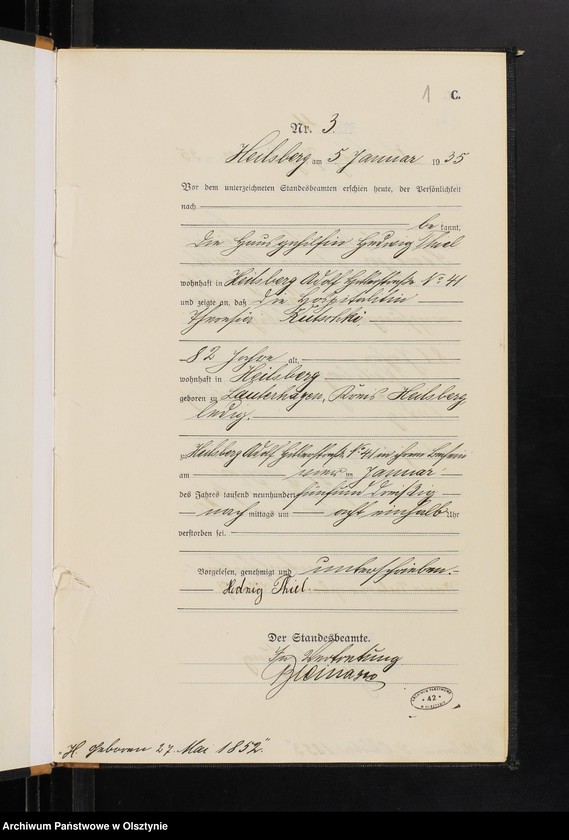 1 C.
Nr. 3.
Heilsberg am 5 Januar 1935
Vor dem unterzeichneten Standesbeamten erschien heute, der Persönlichkeit
nach
be kannt,
die Hausgehilfin Hedwig Thiel
wohnhaft in Heilsberg Adolf Hitlerstraße No 41
und zeigte an, daß die Hospitalitin
Theresia Kutschki,
82 Jahre alt,
wohnhaft in Heilsberg
geboren zu Lauterhagen, Kreis Heilsberg
ledig.
zu Heilsberg Adolf Hitlerstraße No 41 in ihrem Beisein
am vier ten Januar
des Jahres tausend neunhundert fünfund dreißig
nach mittags um acht einhalb Uhr
verstorben sei.
Vorgelesen, genehmigt und unterschrieben.
Hedwig Thiel.
Der Standesbeamte.
In Vertretung
ARCHIWUM PAŃSTWOWE
42
W OLSZTYNIE
„H. geboren 27. Mai 1852“
Archiwum Państwowe w Olsztynie